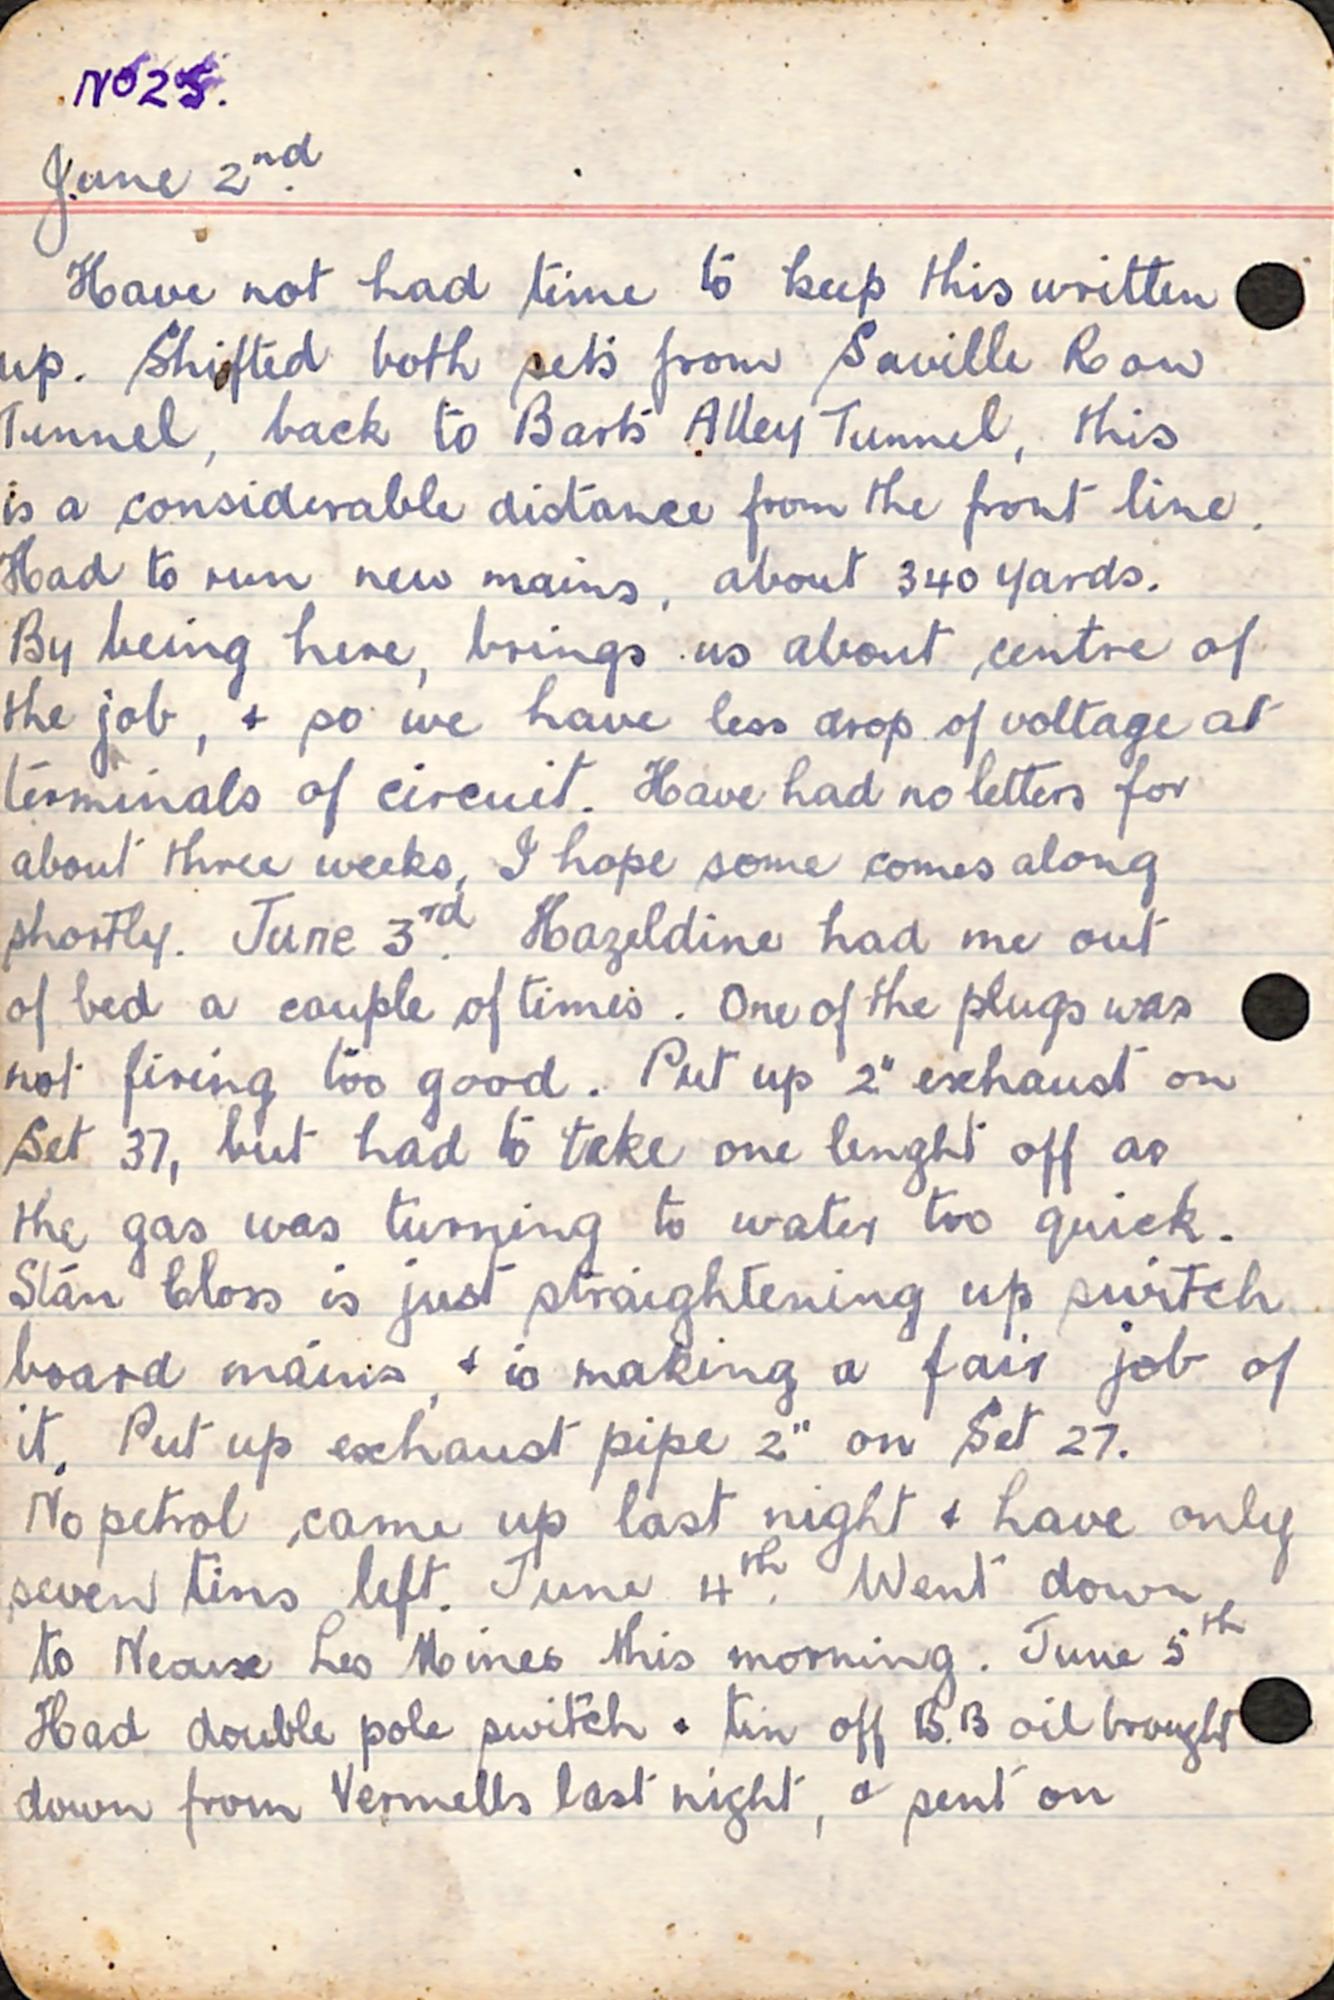 No 25.
June 2nd.
Have not had time to keep this written
up. Shifted both sets from Saville Row
Tunnel, back to Barts Alley Tunnel, this
is a considerable distance from the front line.
Had to run new mains, about 340 yards.
By being here, brings us about centre of
the job, & so we have less drop of voltage at
terminals of circuit. Have had no letters for
about three weeks, I hope some comes along
shortly. June 3rd. Hazeldine had me out
of bed a couple of times. One of the plugs was
not firing too good. Put up 2" exhaust on
Set 37, but had to take one lenght off as
the gas was turning to water too quick.
Stan Closs is just straightening up switch
board mains, & is making a fair job of
it. Put up exhaust pipe 2" on Set 27.
No petrol came up last night & have only
seven tins left. June 4th. Went down
to Neaux Les Mines this morning. June 5th
Had double pole switch & tin off B.B oil brought
down from Vermells last night, & sent on